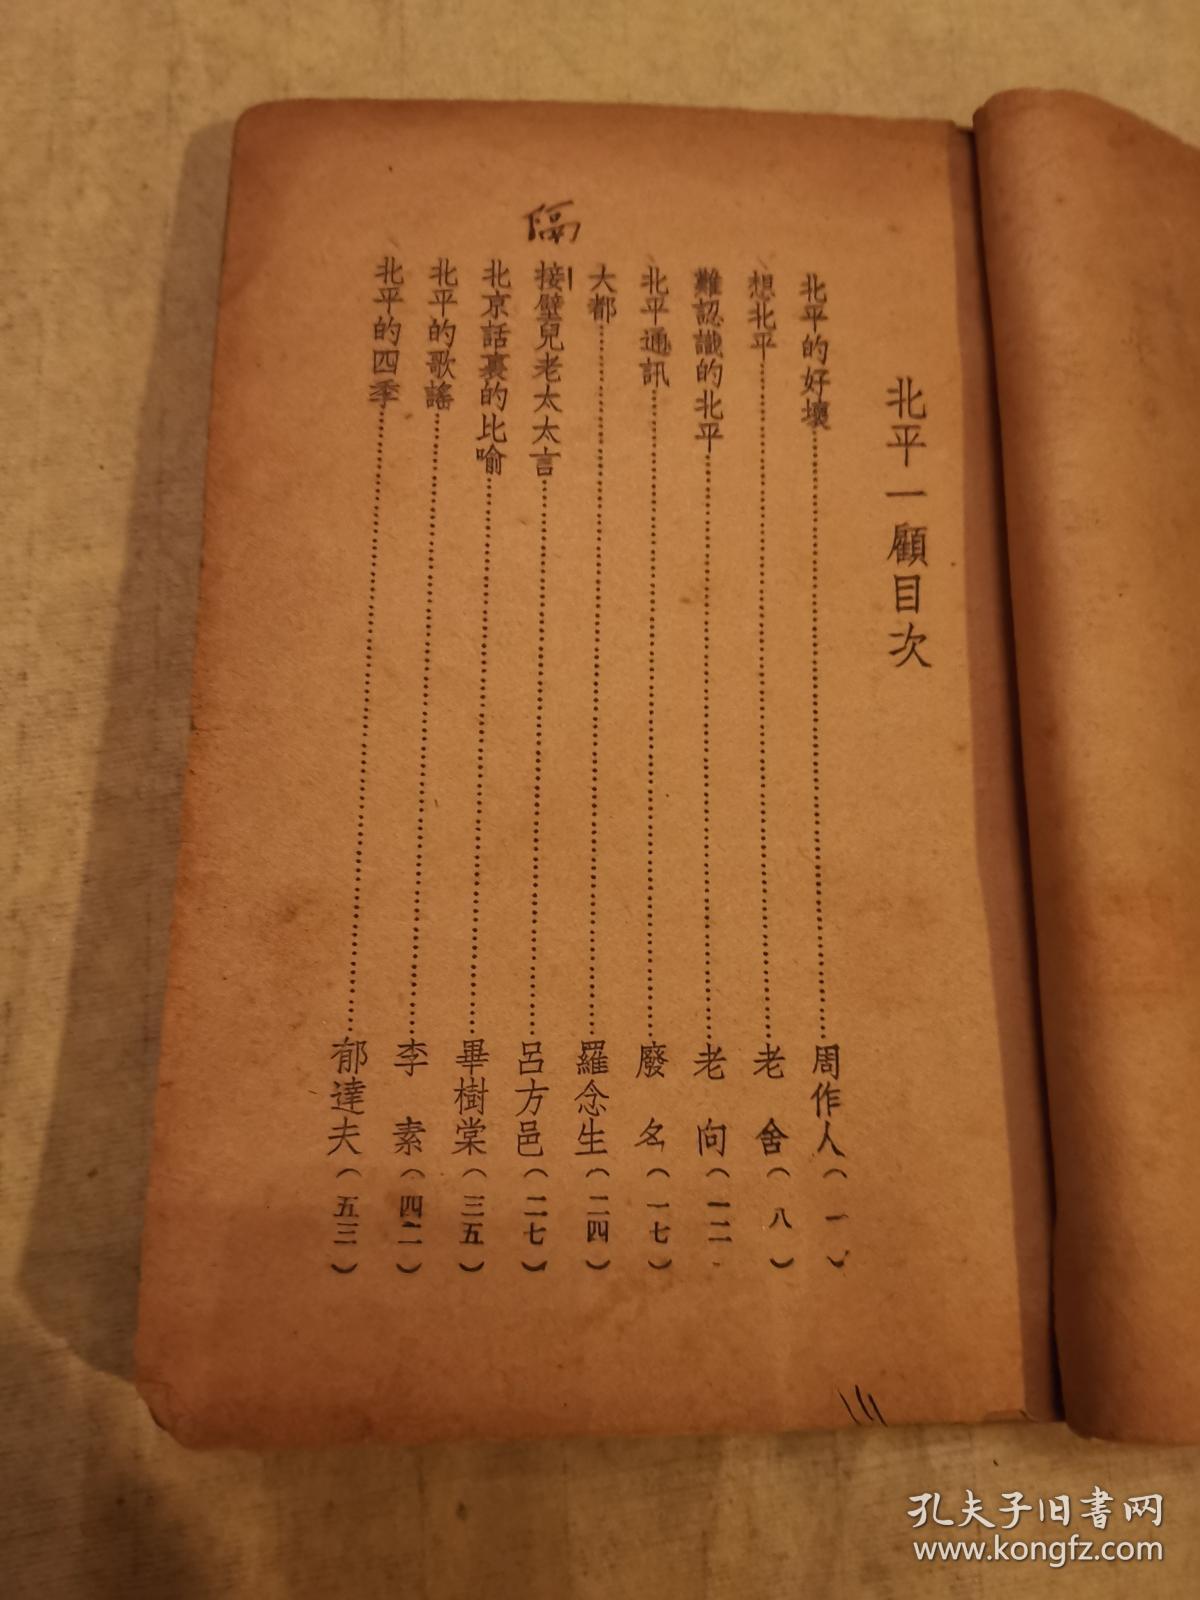 北平一顧目次
北平的好壞……周作人(一)
想北平……老舍(八)
難認識的北平……老向(一二
北平通訊……廢名(一七)
大都……羅念生(二四)
隔
接壁兒老太太言……呂方邑(二七)
北京話裏的比喻……畢樹棠(三五)
北平的歌謠……李素(四二)
北平的四季……郁達夫(五三)
孔夫子旧书网
www.kongfz.com